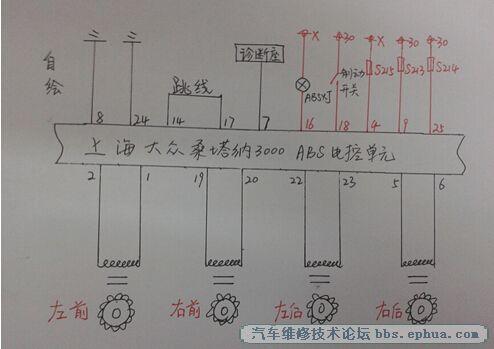 自绘
X 30 X 30 30
诊断座
跳线
ABS灯
制动开关
S215 S213 S214
8 24 14 17 7 16 18 4 9 25
上海大众桑塔纳3000 ABS电控单元
2 1 19 20 22 23 5 6
左前 右前 左后 右后
汽车维修技术论坛 bbs.ephua.com